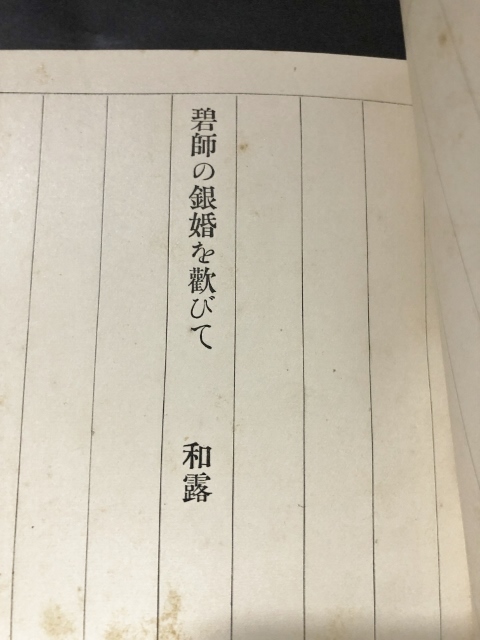 碧師の銀婚を歡びて　　和露